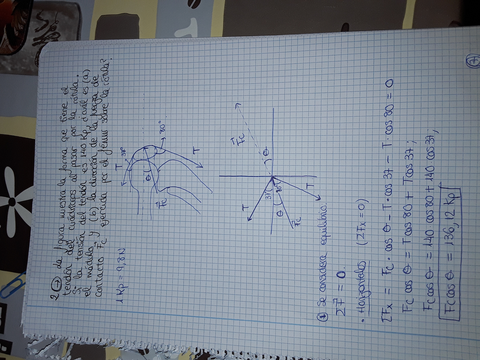 2 La figura muestra la forma que tiene el
tendón del cuádriceps al pasar por la rótula.
Si la tensión del tendón es 140 Kp, ¿cuál es (a)
el módulo y (b) la dirección de la fuerza de
contacto Fc ejercida por el fémur sobre la rótula?
1 Kp = 9,8 N
T
37°
80°
θ
T
Fc
T
37
θ
80
T
Fc
θ
Fc
① Se considera equilibrio:
ΣF = 0
· Horizontales (ΣFx = 0)
ΣFx = Fc · cos θ - T · cos 37 - T · cos 80 = 0
Fc cos θ = T cos 80 + T cos 37;
Fc cos θ = 140 cos 80 + 140 cos 37,
Fc cos θ = 136,12 Kp